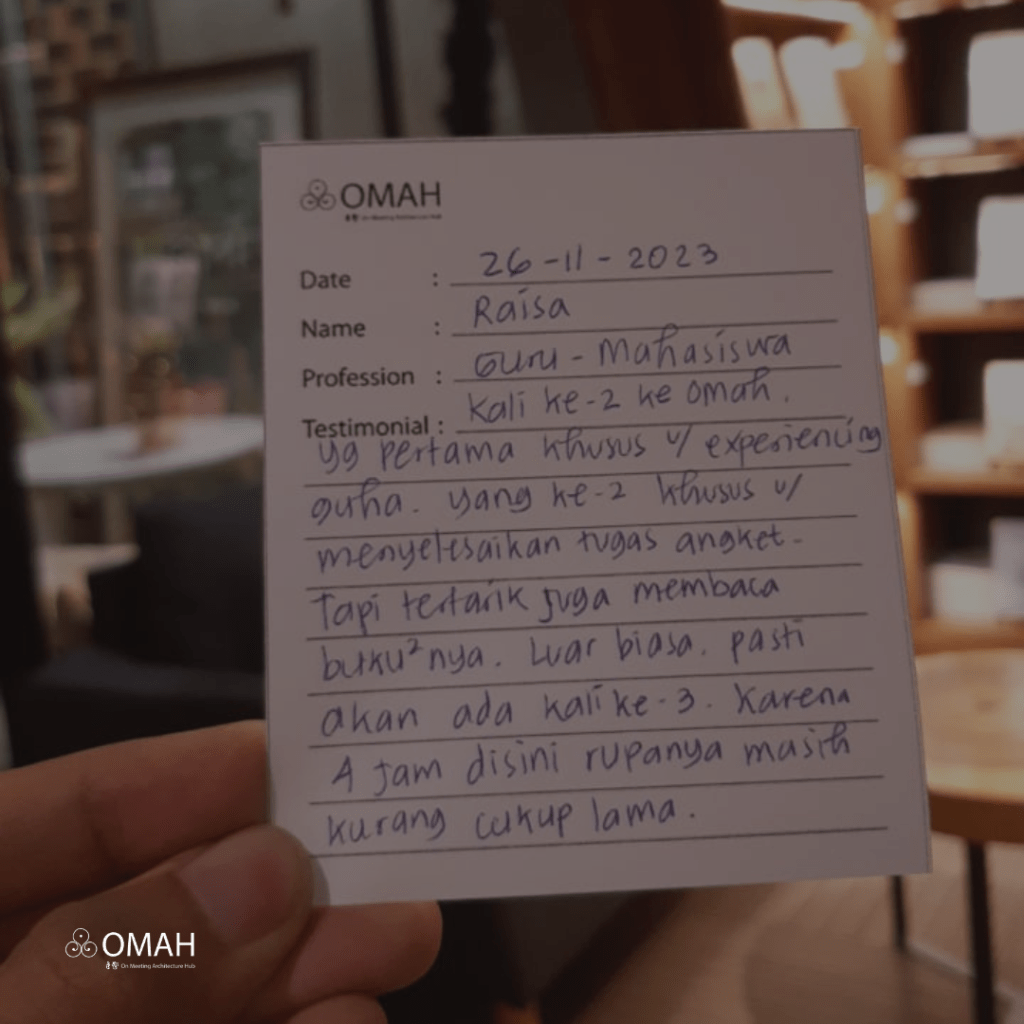 OMAH
On Meeting Architecture Hub
Date : 26-11-2023
Name : Raisa
Profession : Guru - Mahasiswa
Testimonial : Kali ke-2 ke Omah.
yg pertama khusus u/ experiencing
guha. yang ke-2 khusus u/
menyelesaikan tugas angket.
Tapi tertarik juga membaca
buku²nya. Luar biasa. pasti
akan ada kali ke-3. Karena
4 jam disini rupanya masih
kurang cukup lama.
OMAH
On Meeting Architecture Hub